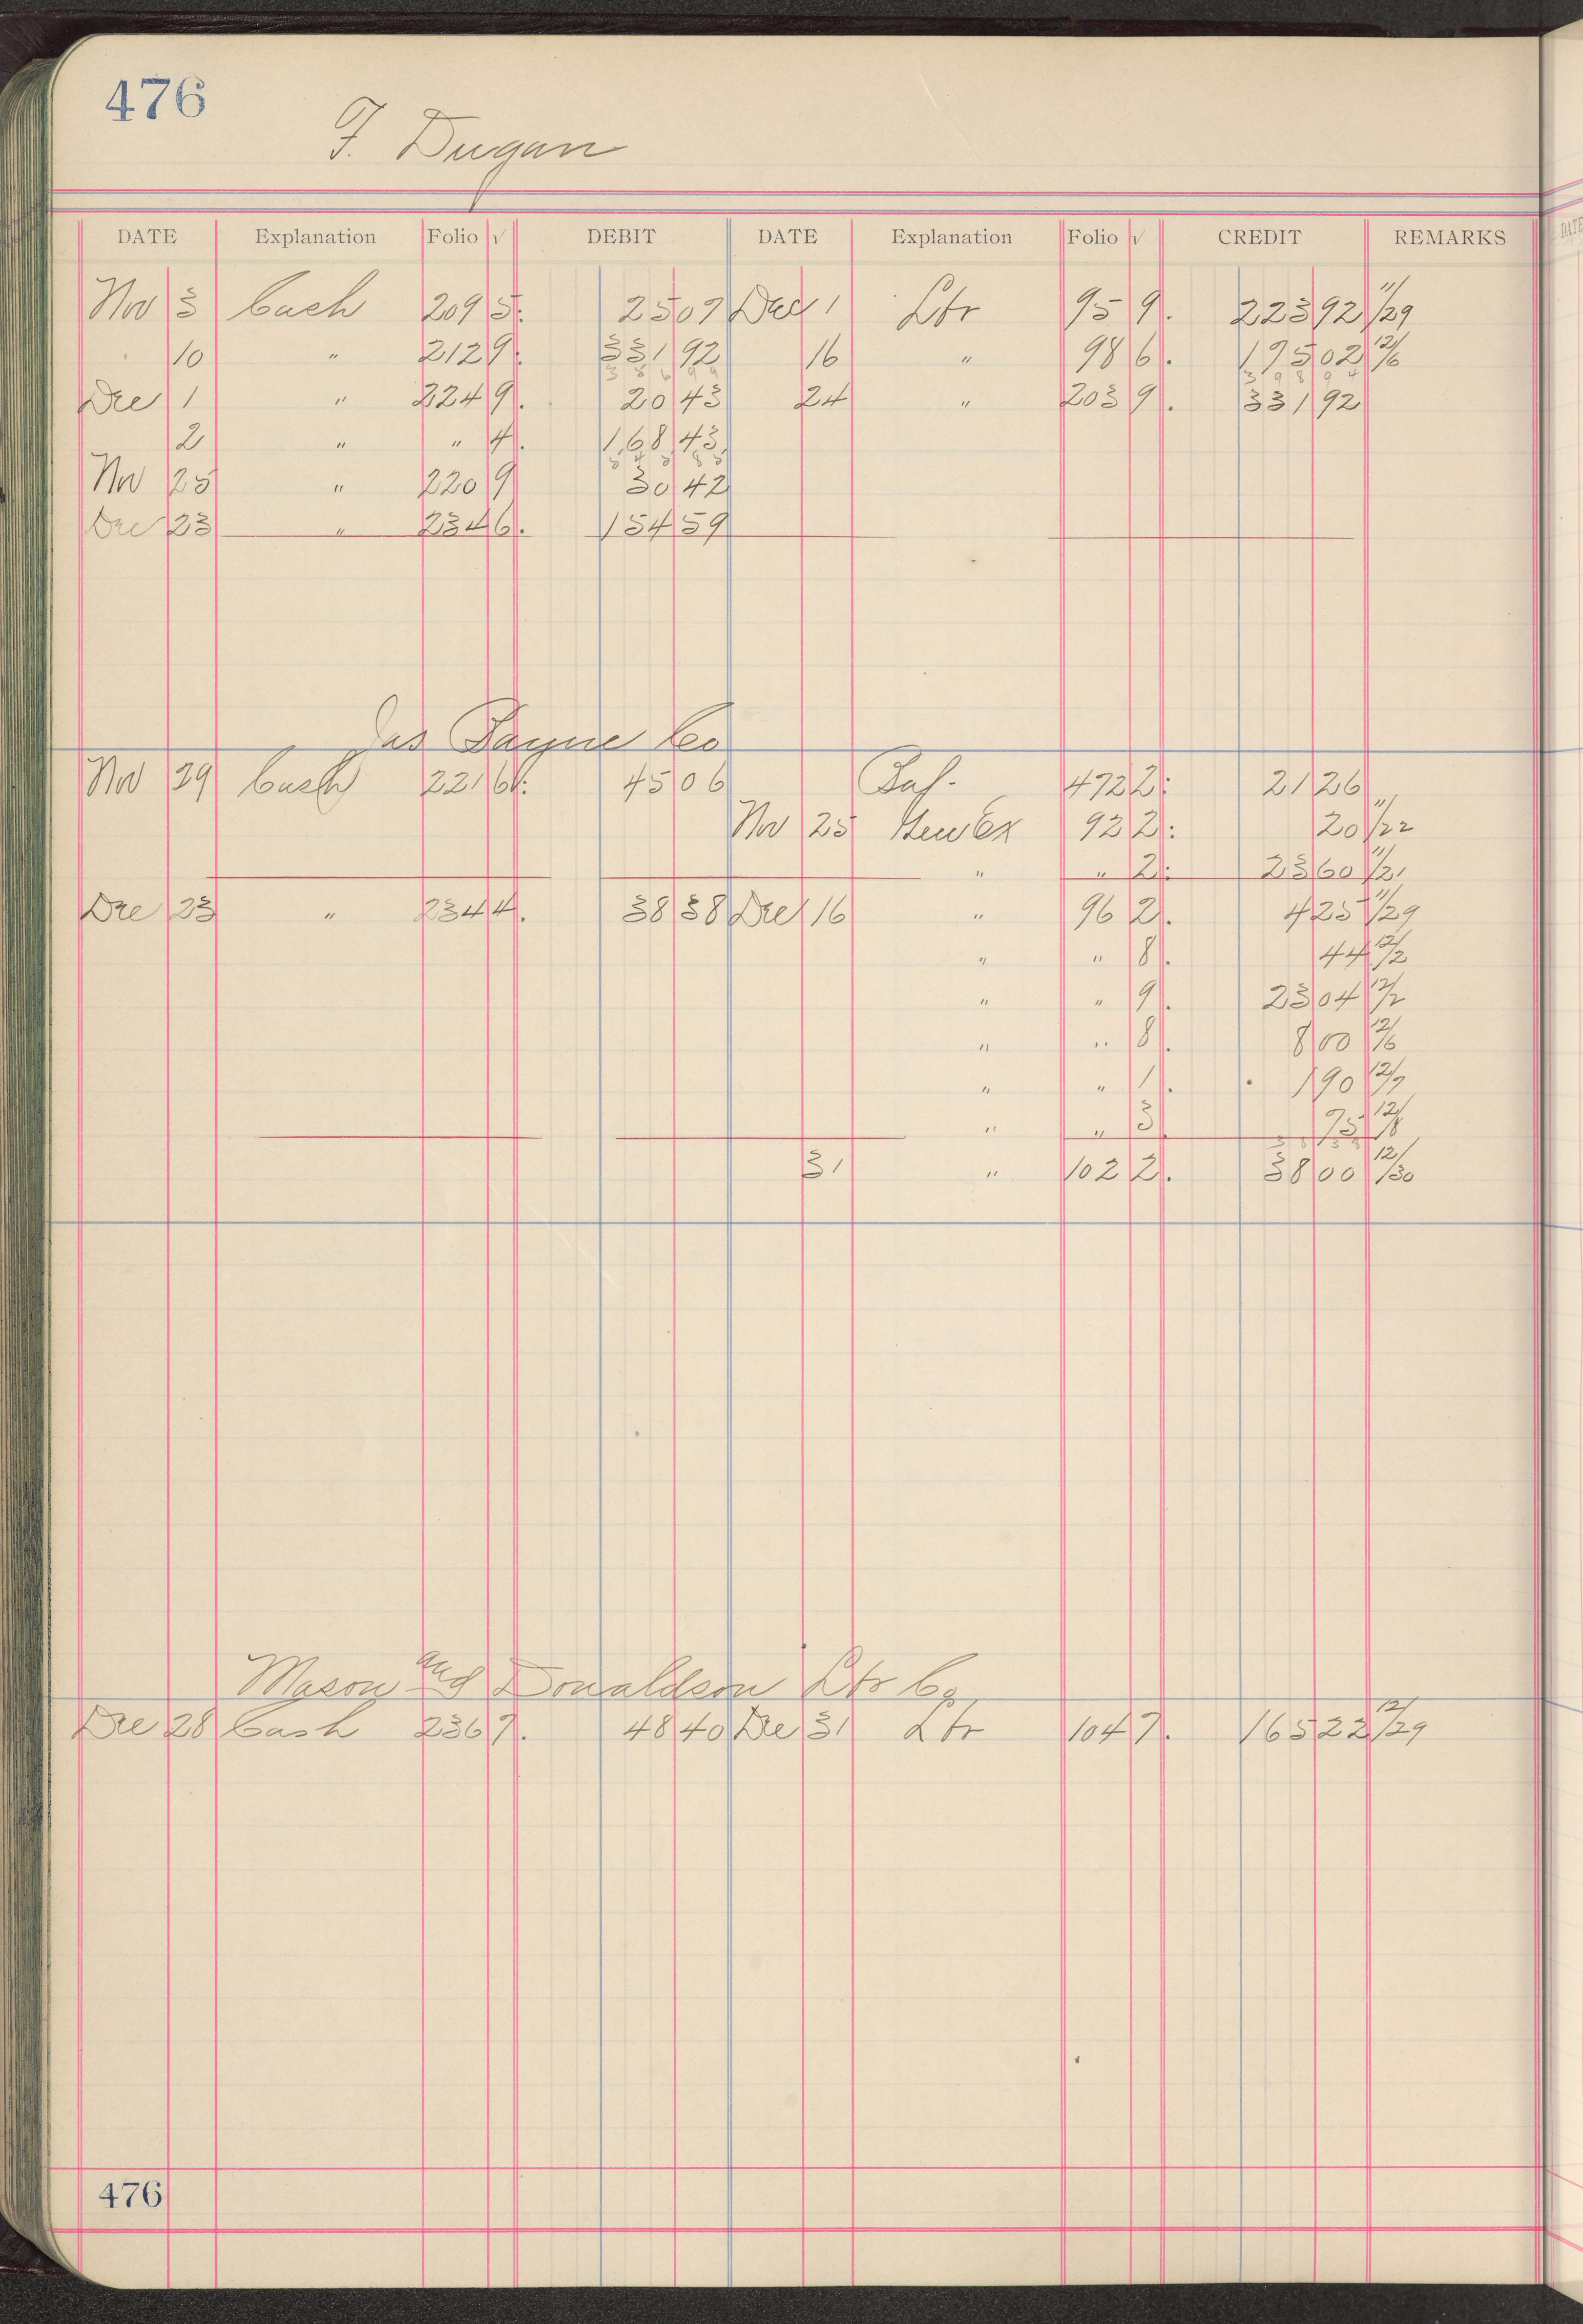 476
F. Dugan
DATE Explanation Folio √ DEBIT DATE Explanation Folio √ CREDIT REMARKS
Nov 3 Cash 209 5. 25 07 Dec 1 Lbr 95 9. 223 92 11/29
10 " 212 9. 331 92 16 " 98 6. 175 02 12/6
Dec 1 " 224 9. 20 43 24 " 203 9. 331 92
2 " " 4. 168 43
Nov 25 " 220 9 30 42
Dec 23 " 234 6. 154 59
Jas Payne Co
Nov 29 Cash 221 6. 45 06 Baf. 472 2. 21 26
Nov 25 New Ex 92 2. 20 11/22
" " 2. 23 60 11/21
Dec 23 " 234 4. 38 38 Dec 16 " 96 2. 4 25 11/29
" " 8. 44 12/2
" " 9. 23 04 12/2
" " 8. 8 00 12/6
" " 1. 1 90 12/7
" " 3. 75 12/8
31 " 102 2. 38 00 12/30
Mason and Donaldson Lbr Co
Dec 28 Cash 236 7. 48 40 De 31 Lbr 104 7. 165 22 12/29
476